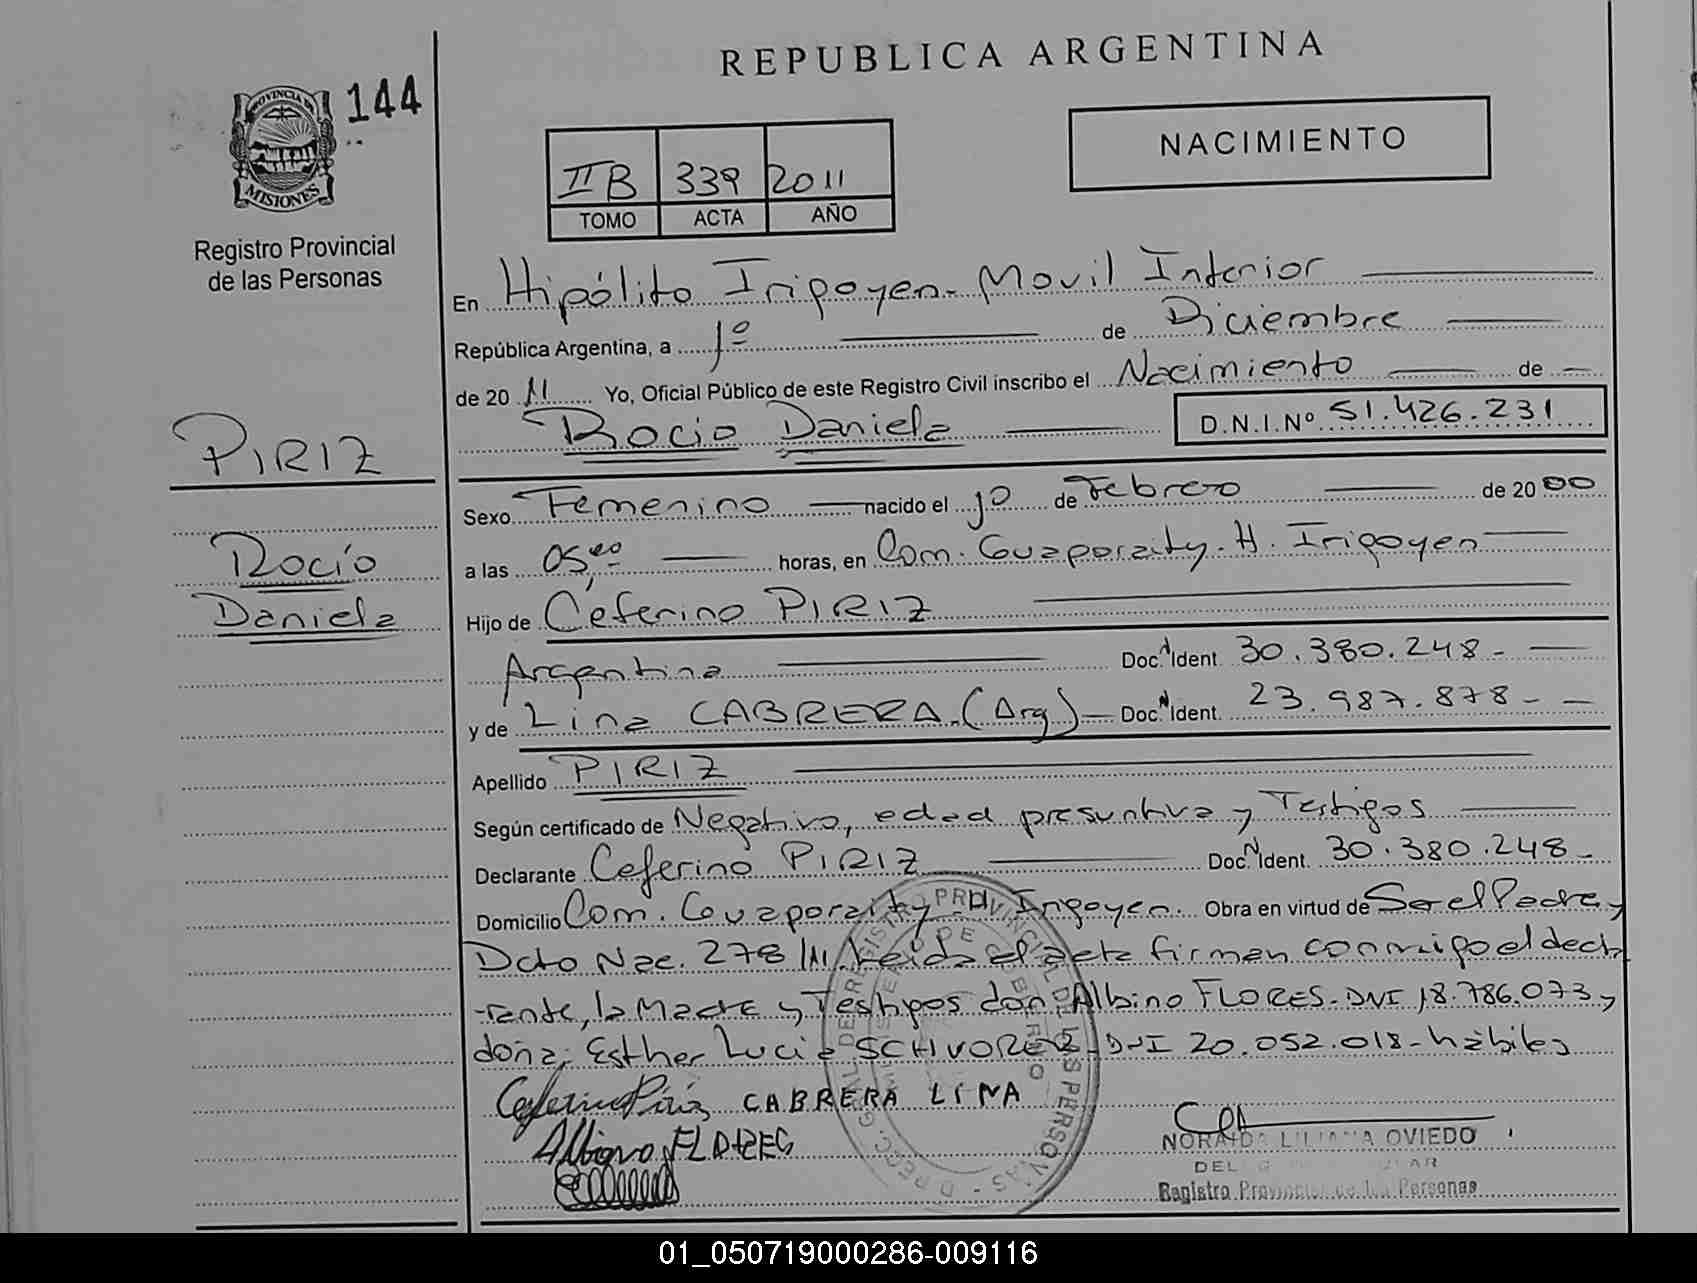 REPUBLICA ARGENTINA
PROVINCIA DE
MISIONES
144
Registro Provincial
de las Personas
NACIMIENTO
II B 339 2011
TOMO ACTA AÑO
En Hipólito Irigoyen - Movil Interior
República Argentina, a 1º de Diciembre
de 20 11 Yo, Oficial Público de este Registro Civil inscribo el Nacimiento de
Rocio Daniela D.N.I.Nº 51.426.231
PIRIZ
Rocío
Daniela
Sexo Femenino nacido el 1º de Febrero de 20 00
a las 05,00 horas, en Com. Guaporaity. H. Irigoyen
Hijo de Ceferino PIRIZ
Argentina Doc. Ident. 30.380.248-
y de Lina CABRERA (Arg) Doc. Ident. 23.987.878-
Apellido PIRIZ
Según certificado de Negativo, edad presuntiva y Testigos
Declarante Ceferino PIRIZ Doc. Ident. 30.380.248-
Domicilio Com. Guaporaity - H. Irigoyen. Obra en virtud de Ser el Padre y
Dcto Nac. 278/11. Leida el acta firman conmigo el decla
-rante, la Madre y Testigos don: Albino FLORES - DNI 18.786.073 y
doña: Esther Lucia DNI 20.052.018 - hábiles
Ceferino Piriz CABRERA LINA
Albino FLORES
NORAIDA LILIANA OVIEDO
Registro Provincial de las Personas
01_050719000286-009116